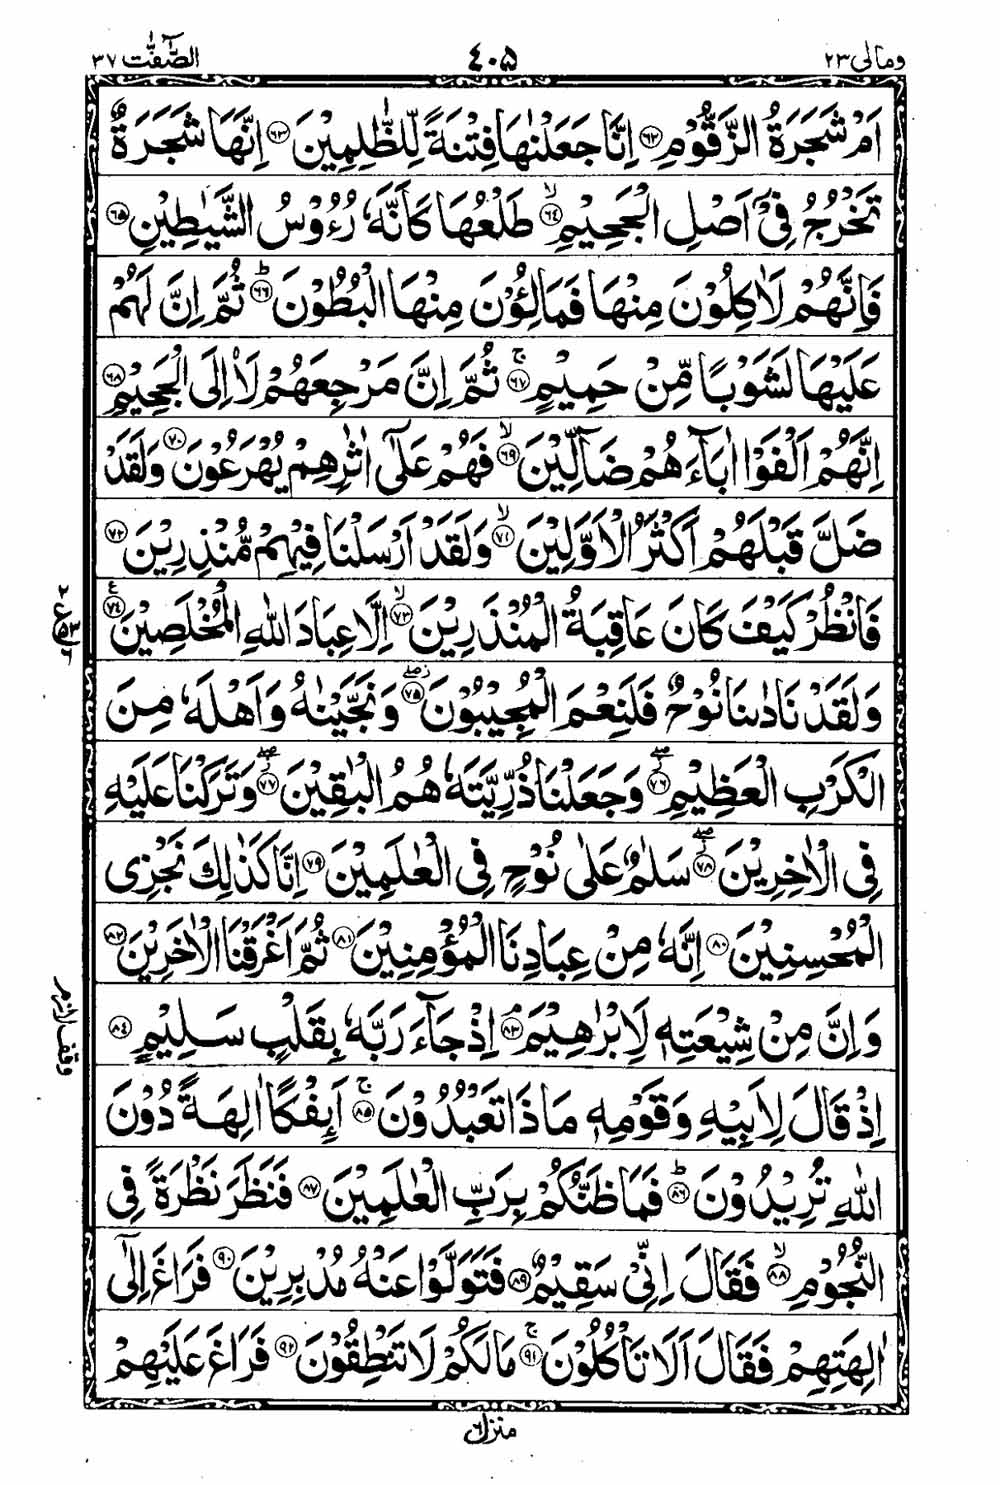 ومالی ٢٣ ٤٠٥ الصّٰٓفّٰت ٣٧
اَمْ شَجَرَةُ الزَّقُّوْمِ ﴿٦٢﴾ اِنَّا جَعَلْنٰهَا فِتْنَةً لِّلظّٰلِمِيْنَ ﴿٦٣﴾ اِنَّهَا شَجَرَةٌ
تَخْرُجُ فِيْٓ اَصْلِ الْجَحِيْمِ ۙ﴿٦٤﴾ طَلْعُهَا كَاَنَّهٗ رُءُوْسُ الشَّيٰطِيْنِ ﴿٦٥﴾
فَاِنَّهُمْ لَاٰكِلُوْنَ مِنْهَا فَمَالِـُٔوْنَ مِنْهَا الْبُطُوْنَ ؕ﴿٦٦﴾ ثُمَّ اِنَّ لَهُمْ
عَلَيْهَا لَشَوْبًا مِّنْ حَمِيْمٍ ۚ﴿٦٧﴾ ثُمَّ اِنَّ مَرْجِعَهُمْ لَا۟اِلَى الْجَحِيْمِ ﴿٦٨﴾
اِنَّهُمْ اَلْفَوْا اٰبَآءَهُمْ ضَآلِّيْنَ ۙ﴿٦٩﴾ فَهُمْ عَلٰٓى اٰثٰرِهِمْ يُهْرَعُوْنَ ﴿٧٠﴾ وَلَقَدْ
ضَلَّ قَبْلَهُمْ اَكْثَرُ الْاَوَّلِيْنَ ۙ﴿٧١﴾ وَلَقَدْ اَرْسَلْنَا فِيْهِمْ مُّنْذِرِيْنَ ﴿٧٢﴾
فَانْظُرْ كَيْفَ كَانَ عَاقِبَةُ الْمُنْذَرِيْنَ ۙ﴿٧٣﴾ اِلَّا عِبَادَ اللّٰهِ الْمُخْلَصِيْنَ ﴿٧٤﴾ ع
وَلَقَدْ نَادٰىنَا نُوْحٌ فَلَنِعْمَ الْمُجِيْبُوْنَ ﴿٧٥﴾ وَنَجَّيْنٰهُ وَاَهْلَهٗ مِنَ
الْكَرْبِ الْعَظِيْمِ ﴿٧٦﴾ وَجَعَلْنَا ذُرِّيَّتَهٗ هُمُ الْبٰقِيْنَ ﴿٧٧﴾ وَتَرَكْنَا عَلَيْهِ
فِى الْاٰخِرِيْنَ ﴿٧٨﴾ سَلٰمٌ عَلٰى نُوْحٍ فِى الْعٰلَمِيْنَ ﴿٧٩﴾ اِنَّا كَذٰلِكَ نَجْزِى
الْمُحْسِنِيْنَ ﴿٨٠﴾ اِنَّهٗ مِنْ عِبَادِنَا الْمُؤْمِنِيْنَ ﴿٨١﴾ ثُمَّ اَغْرَقْنَا الْاٰخَرِيْنَ ﴿٨٢﴾
وَاِنَّ مِنْ شِيْعَتِهٖ لَاِبْرٰهِيْمَ ۘ﴿٨٣﴾ اِذْ جَآءَ رَبَّهٗ بِقَلْبٍ سَلِيْمٍ ﴿٨٤﴾
وقف لازم
اِذْ قَالَ لِاَبِيْهِ وَقَوْمِهٖ مَاذَا تَعْبُدُوْنَ ۚ﴿٨٥﴾ اَئِفْكًا اٰلِهَةً دُوْنَ
اللّٰهِ تُرِيْدُوْنَ ؕ﴿٨٦﴾ فَمَا ظَنُّكُمْ بِرَبِّ الْعٰلَمِيْنَ ﴿٨٧﴾ فَنَظَرَ نَظْرَةً فِى
النُّجُوْمِ ۙ﴿٨٨﴾ فَقَالَ اِنِّيْ سَقِيْمٌ ﴿٨٩﴾ فَتَوَلَّوْا عَنْهُ مُدْبِرِيْنَ ﴿٩٠﴾ فَرَاغَ اِلٰٓى
اٰلِهَتِهِمْ فَقَالَ اَلَا تَاْكُلُوْنَ ۚ﴿٩١﴾ مَا لَكُمْ لَا تَنْطِقُوْنَ ﴿٩٢﴾ فَرَاغَ عَلَيْهِمْ
منزل ٦